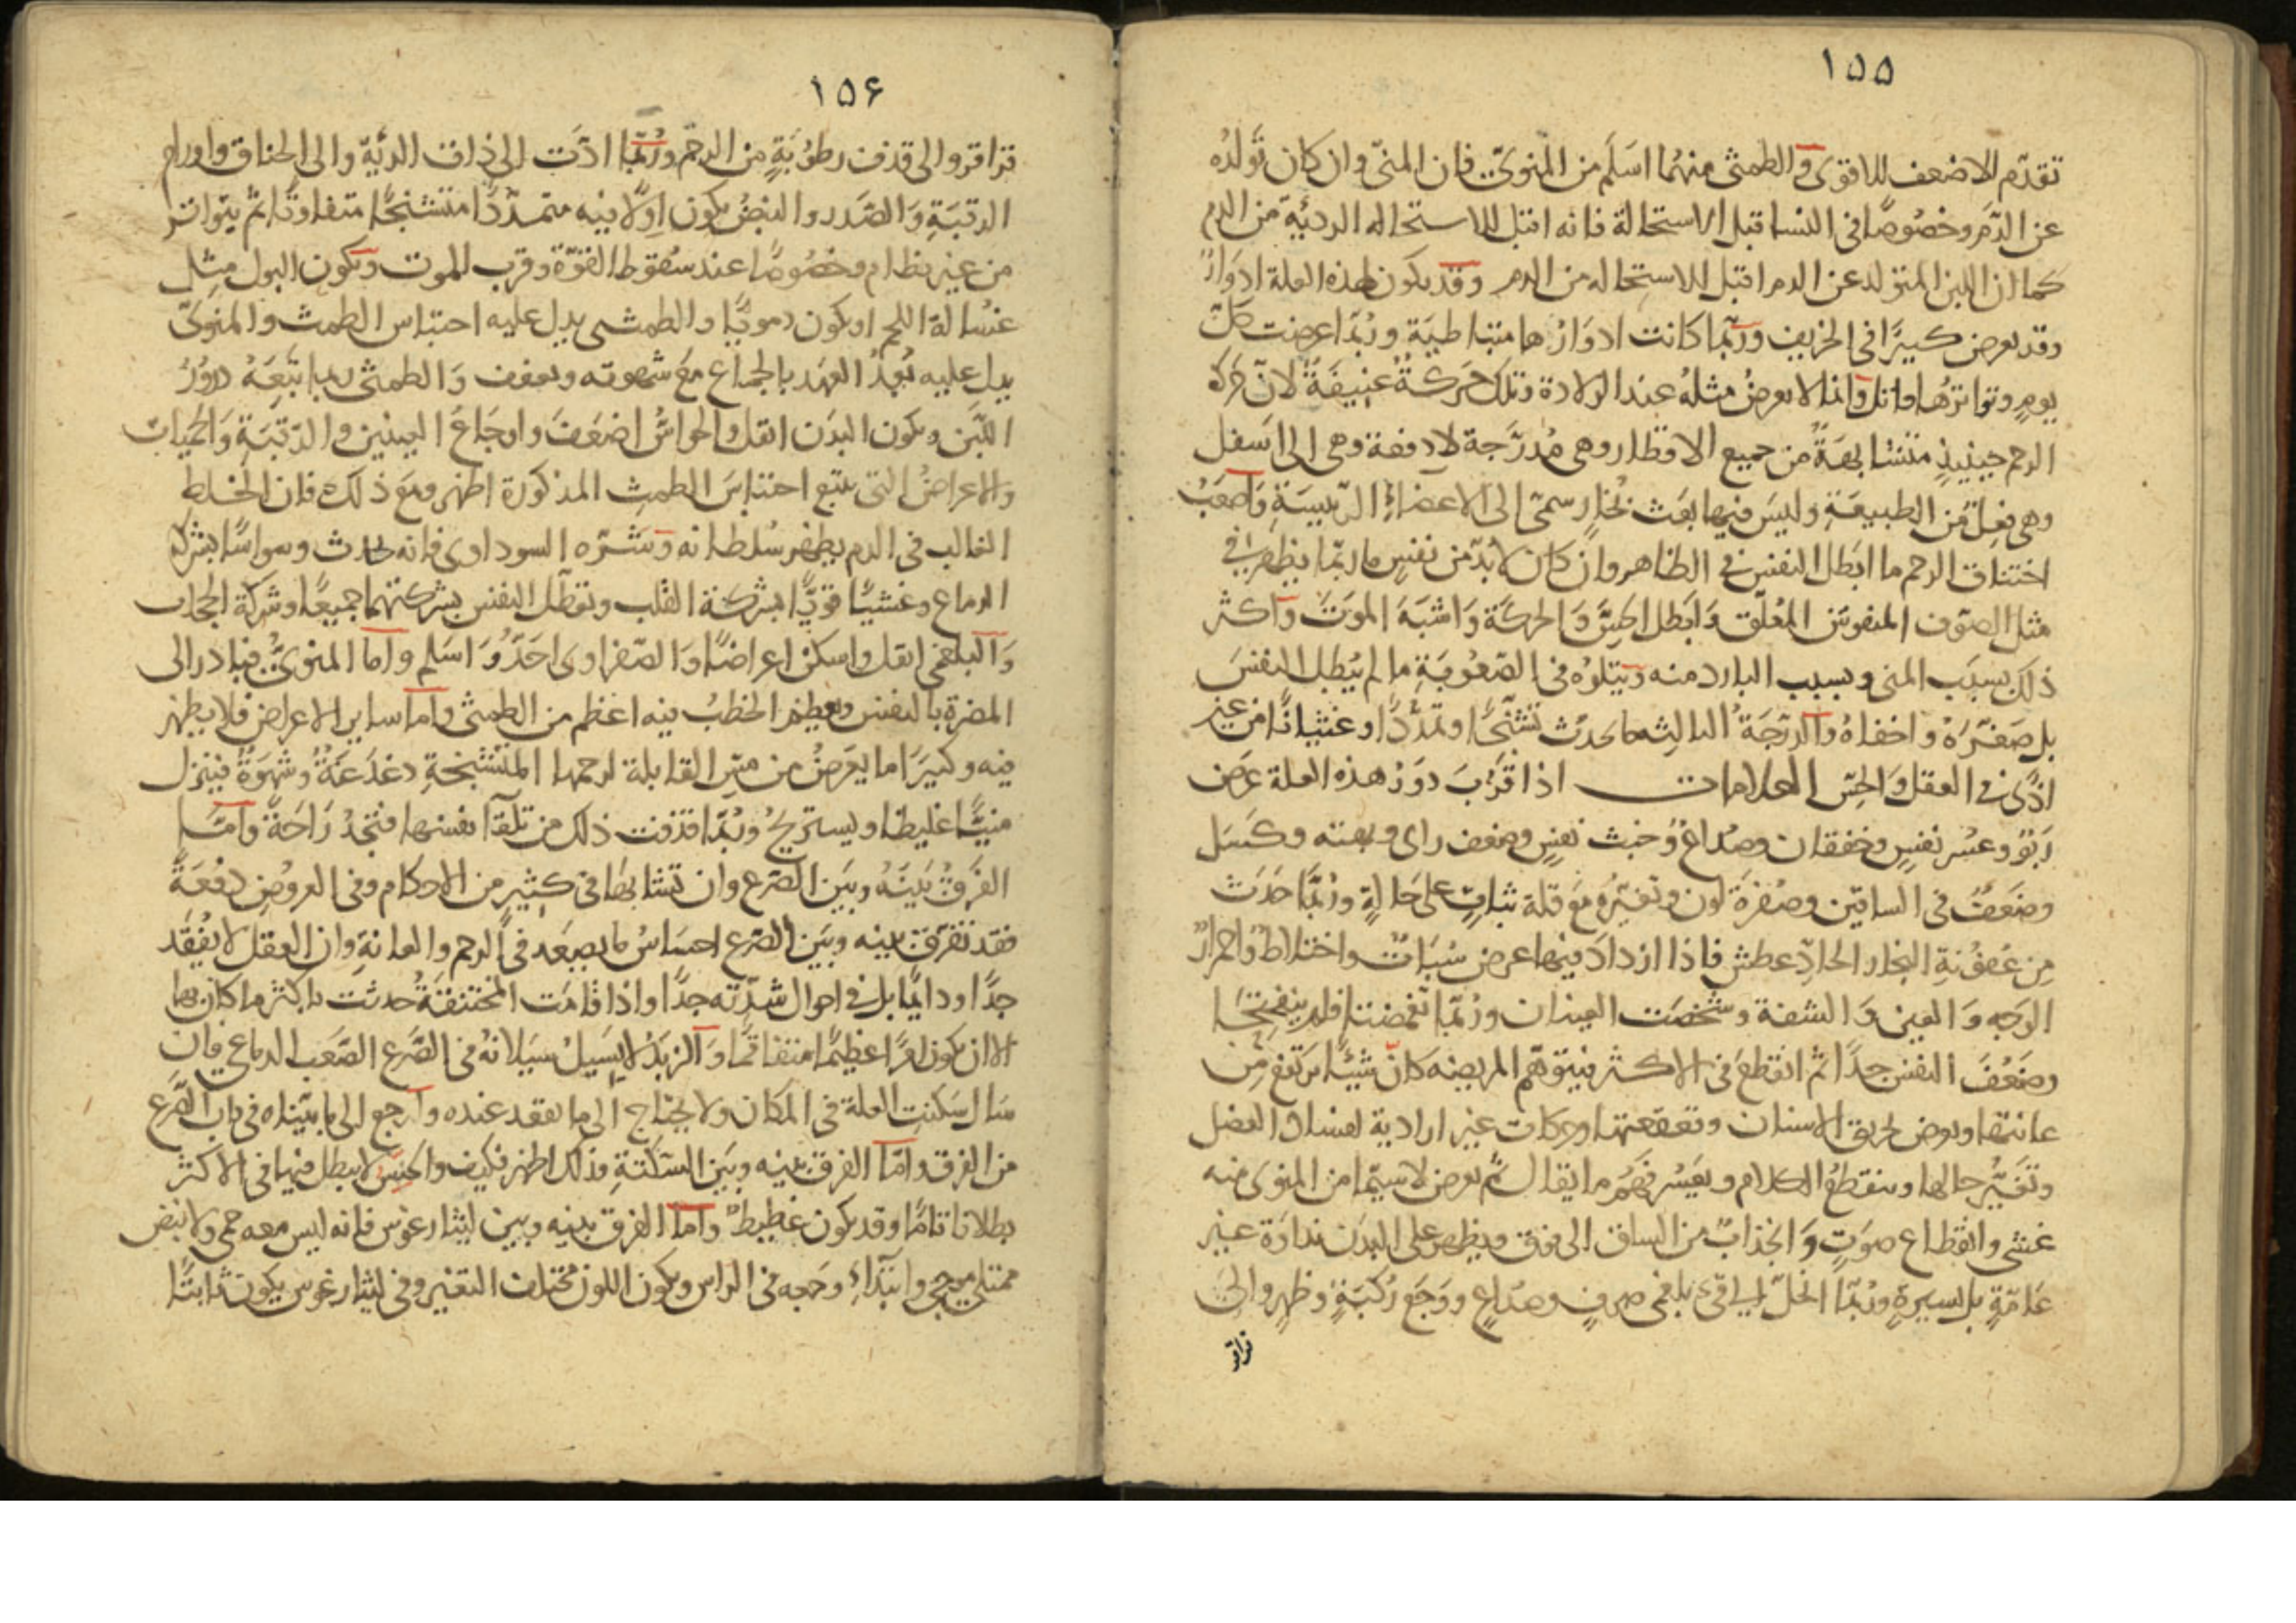 ١٥٥
تقدّم الاضعف للاقوى والطمثى منهما اسلم من المنوىّ فان المنىّ وان كان تولده
عن الدّم وخصوصًا فى النسا قبل الاستحالة فانه اقبل للاستحاله الرديّة من الدم
كما ان اللبن المتولد عن الدم اقبل للاستحاله من الدم وقد يكون لهذه العلة ادوارٌ
وقد يعرض كثيرًا فى الخريف وربّما كانت ادوارها متباطية وربّما عرضت كلّ
يومٍ وتواترها قاتل وانما لا يعرض مثله عند الولادة وتلك حركةٌ عنيفةٌ لانّ حركة
الرحم حينيذٍ متشابهةٌ من جميع الاقطار وهى مدرّجة لا دفعة وهى الى اسفل
وهى فعلٌ من الطبيعة وليس فيها بعث بخارٍ سمىّ الى الاعضاء الرّييسة واصعب
اختناق الرحم ما ابطل النفس فى الظاهر وان كان لا بدّ من نفسٍ ما ربّما يظهر فى
مثل الصوف المنفوش المعلّق وابطل الحسّ والحركة واشبه الموت واكثر
ذلك بسبب المنى وبسبب البارد منه ويتلوه فى الصّعوبة ما لم يبطل النفس
بل صغّره واخفاه والدّرجة الثالثه ما يحدث تشنّجًا وتمدّدًا وغثيانًا من غير
اذًى فى العقل والحسّ العلامات اذا قرب دور هذه العلة عرض
ربوٌ وعسر نفسٍ وخفقان وصداعٌ وخبث نفسٍ وضعف راى وبهتة وكسل
وضعفٌ فى الساقين وصفرة لون وتغيّره مع قلة ثباتٍ على حالةٍ وربّما حدث
من عفونة البخار الحادّ عطش فاذا ازداد فيها عرض سباتٌ واختلاطٌ واحمرارٌ
الوجه والعين والشفة وشخصت العينان وربّما تغمضتا فلم ينفتحا
وضعف النفس جدًا ثم انقطع فى الاكثر فيتوهّم المريضه كانّ شيئًا يرتفع من
عانتها ويعرض تحريق الاسنان وتقعقعتها وحركات غير ارادية لفساد العضل
وتغيّر حالها وينقطع الكلام ويعسر فهم ما يقال ثم يعرض لا سيّما من المنوى منه
غشى وانقطاع صوتٍ وانجذابٌ من الساق الى فوق ويظهر على البدن نداوة غير
عامّةٍ بل يسيرةٍ وربّما انحلّ الى قىء بلغمى صرفٍ وصداعٍ ووجع ركبةٍ وظهرٍ والى
قراقر
١٥۶
قراقر والى قذف رطوبةٍ من الرحم وربّما ادّت الى ذات الريّة والى الخناق واورام
الرقبة والصّدر والنبض يكون اولًا فيه متمدّدًا متشنجًا متفاوتًا ثم يتواتر
من غير نظام وخصوصًا عند سقوط القوّة وقرب الموت ويكون البول مثل
غسالة اللحم او يكون دمويًّا والطمثى يدل عليه احتباس الطمث والمنوىّ
يدل عليه بُعدُ العهد بالجماع مع شهوته وتعفف والطمثى ربما تبعهُ درورُ
اللبن ويكون البدن اثقل والحواسّ اضعف واوجاعُ العينين والرّقبة والحميات
والاعراض التى يتبع احتباس الطمث المذكورة اظهر ومع ذلك فان الخلط
الغالب فى الدم يظهر سلطانه وشرّه السوداوى فانه يحدث وسواسًا بشركة
الدماغ وغشيًا قويًّا بشركة القلب وتعطّل النفس بشركتهما جميعًا وشركة الحجاب
والبلغمى اثقل واسكن اعراضًا والصّفراوى احدّ واسلم واما المنوىّ فيبادر الى
المضرة بالنفس ويعظم الخطبُ فيه اعظم من الطمثى واما ساير الاعراض فلا يظهر
فيه وكثيرًا ما يعرض من مسّ القابلة لرحمها المتشنجة دغدغةٌ وشهوةٌ فينزل
منيًّا غليظا ويستريح وربّما قذفت ذلك من تلقآ نفسها فتجد راحةً وامّا
الفرقُ بينه وبين الصّرع وان تشابها فى كثيرٍ من الاحكام وفى العروض دفعةً
فقد تفرّق بينه وبين الصّرع احساسُ ما يصعد فى الرحم والعانة وان العقل لا يفقد
جدًّا ودايمًا بل فى احوال شدّته جدًّا واذا قامت المختنقة حدثت باكثر ما كان بها
الا ان يكون امرًا عظيمًا متفاقمًا والزبد لا يسيل سيلانه فى الصّرع الصّعب الدماعى فان
سال سكنت العلة فى المكان ولا يحتاج الى ما يعقد عنده وارجع الى ما بيّناه فى باب الصّرع
من الفرق وامّا الفرق بينه وبين السّكتة فذلك اظهر فكيف والحسّ لا يبطل فيها فى الاكثر
بطلانا تامًّا وقد يكون غطيط واما الفرق بينه وبين ليثارغوس فانه ليس معه حمى ولا نبض
ممتلى موجى وابتداء وجعه فى الراس ويكون اللون مختلف التغير وفى ليثارغوس يكون ثابتًا